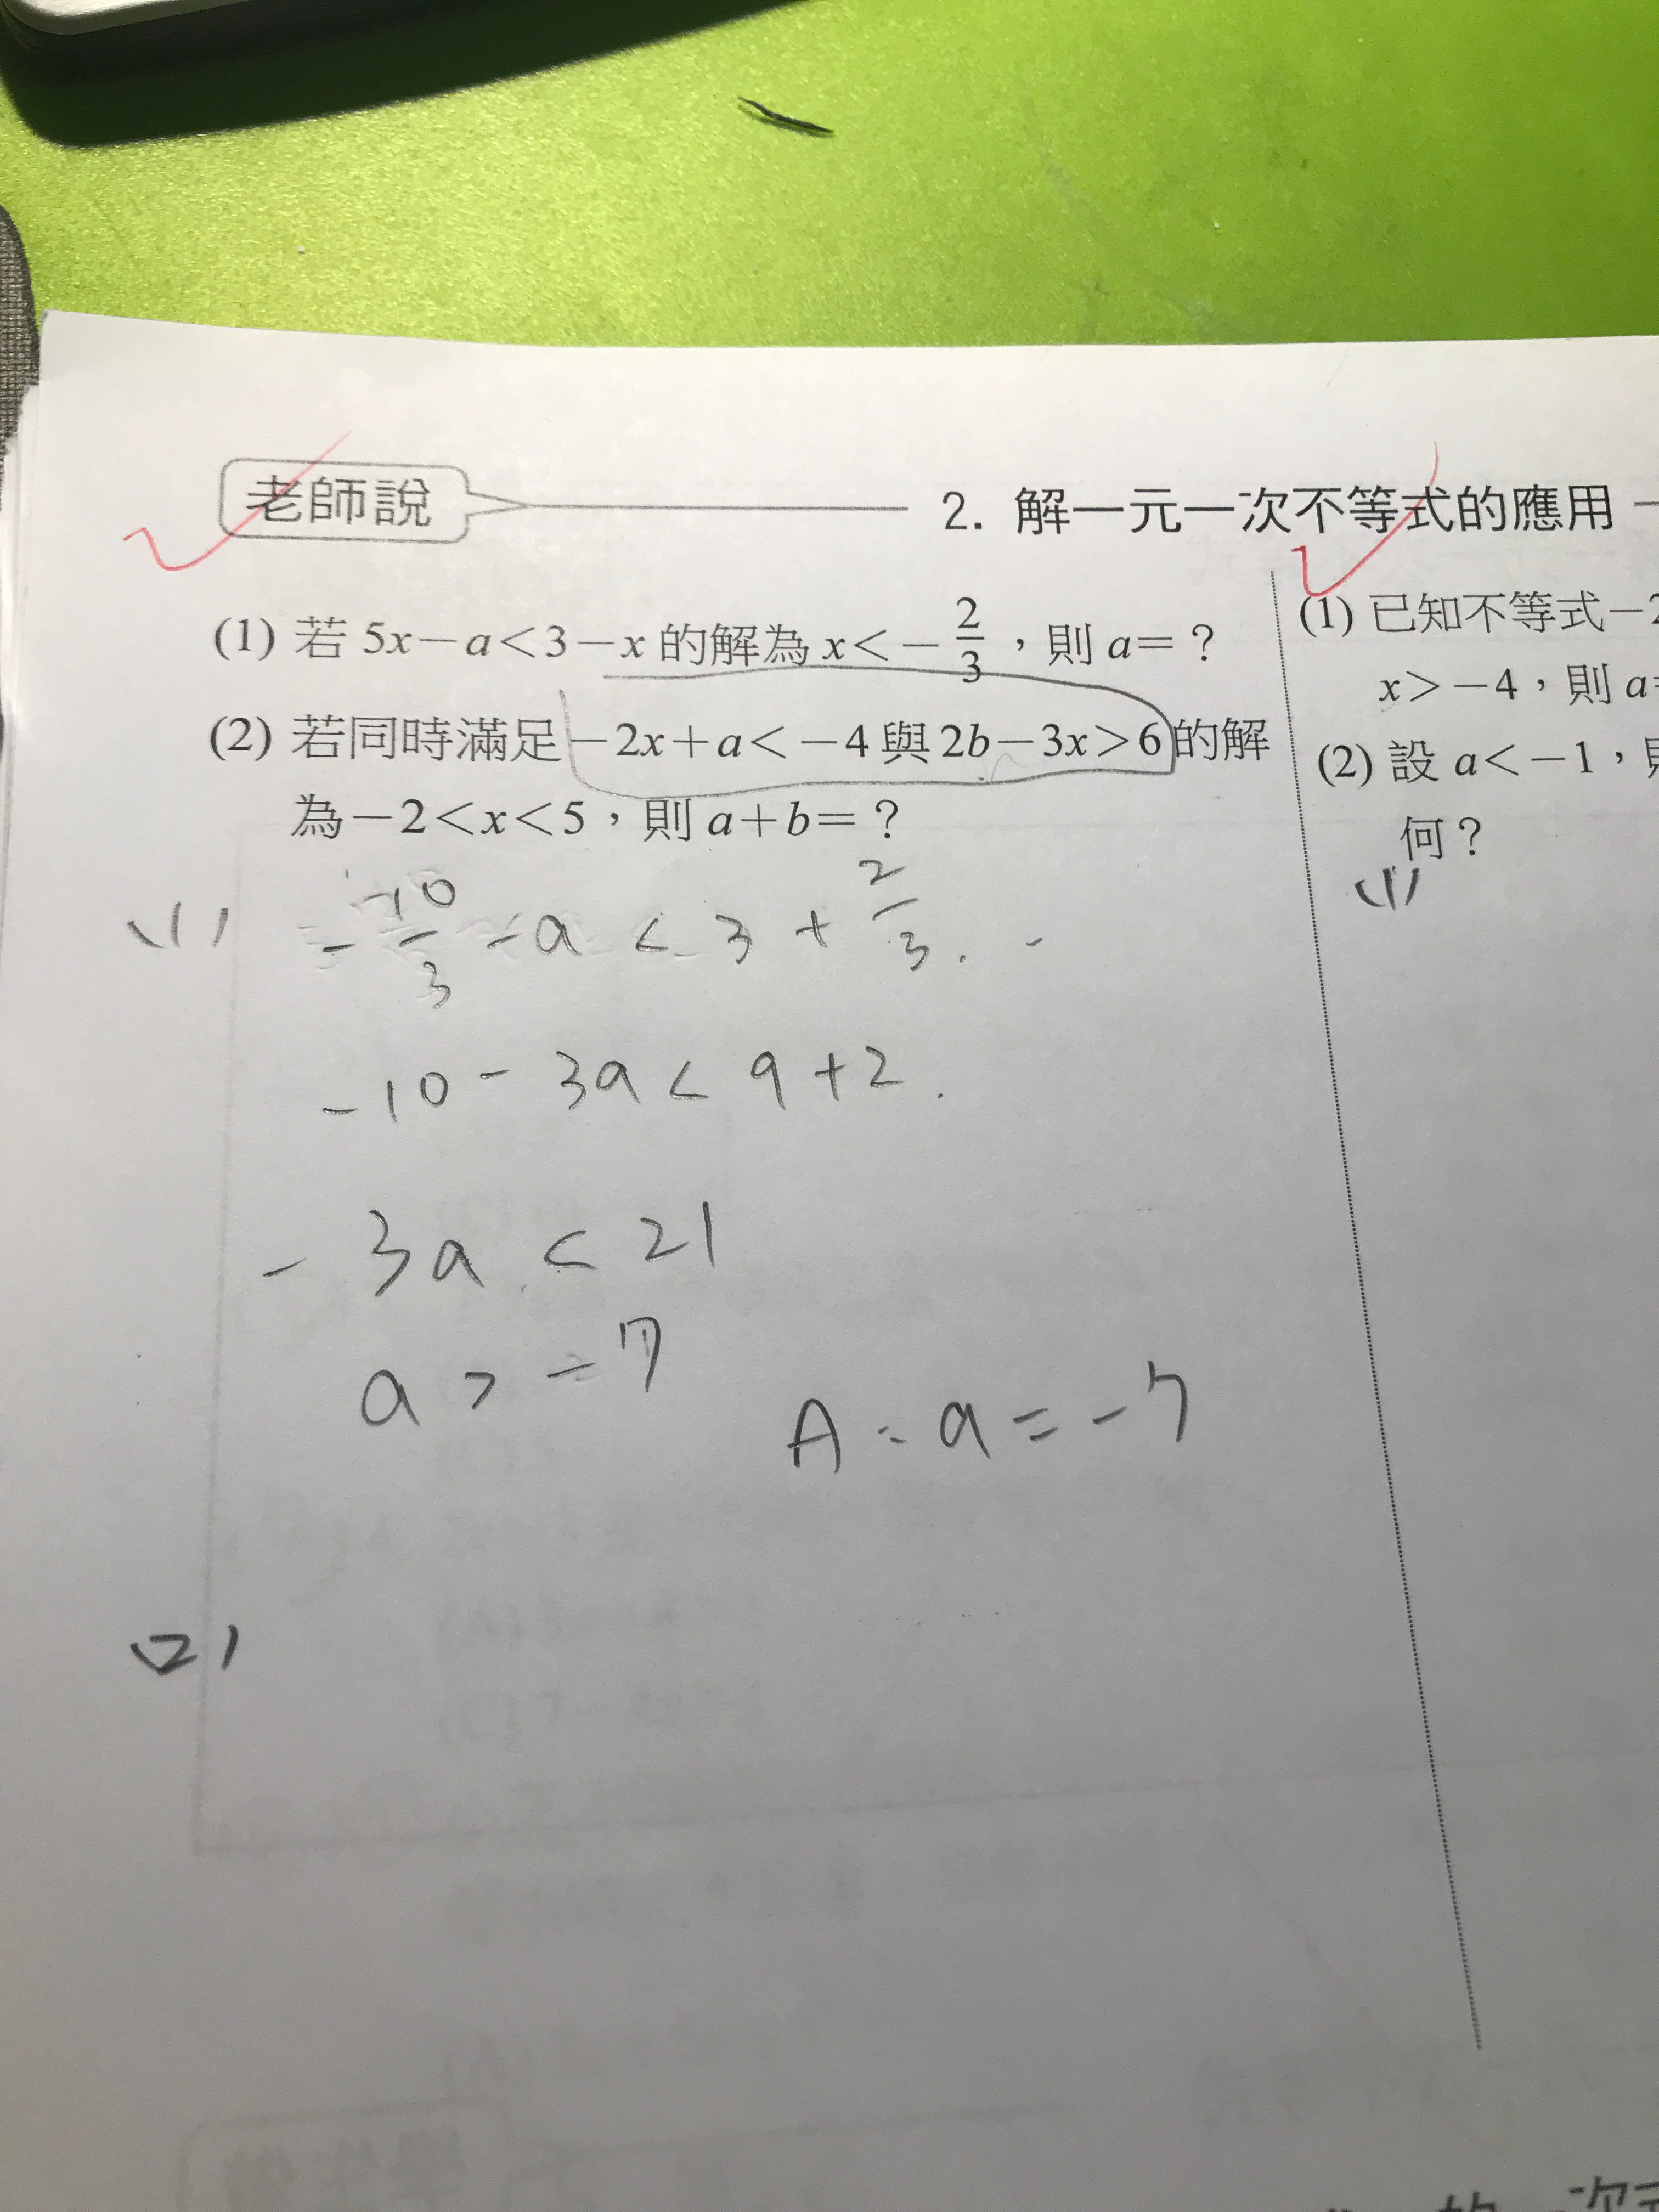 老師說
2. 解一元一次不等式的應用
(1) 若 5x－a＜3－x 的解為 x＜－2/3，則 a＝？
(2) 若同時滿足－2x＋a＜－4 與 2b－3x＞6 的解
為－2＜x＜5，則 a＋b＝？
(1) －10/3 －a < 3 + 2/3
-10 - 3a < 9 + 2
- 3a < 21
a > -7
A: a = -7
(2)
(1) 已知不等式－2
x＞－4，則 a
(2) 設 a＜－1，
何？
(1)